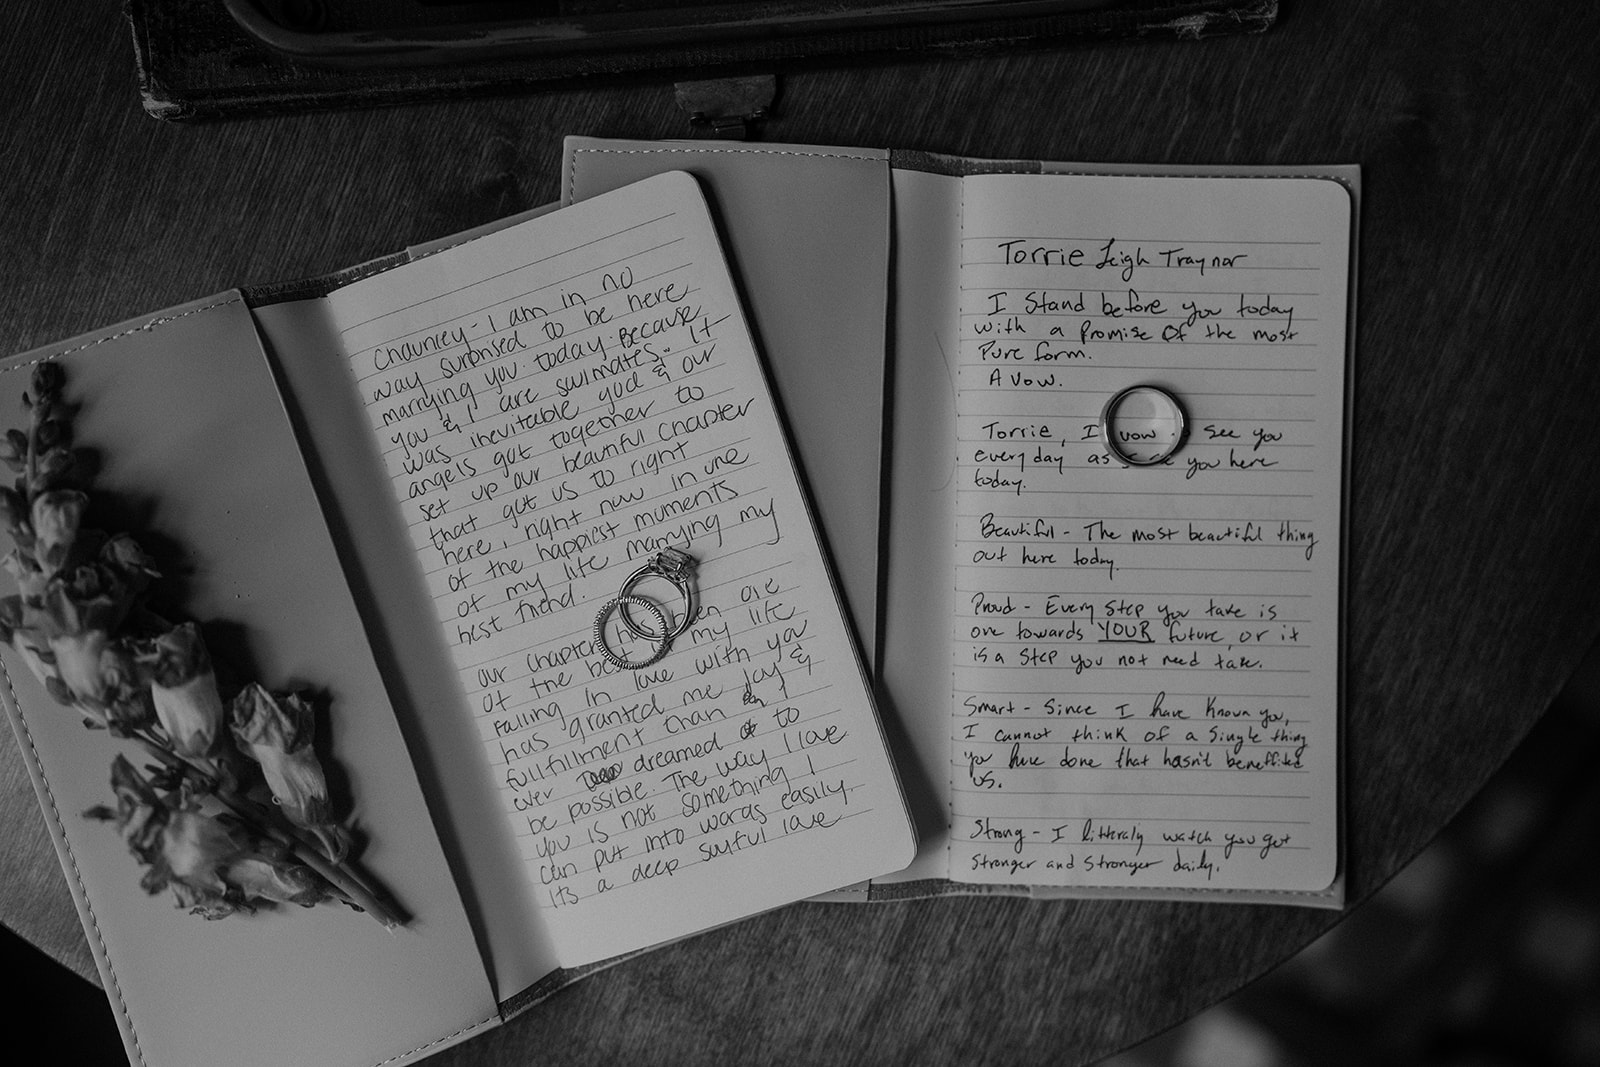 Chauncey - I am in no
way surprised to be here
marrying you today. Because
you & I are soulmates. It
was inevitable god & our
angels got together to
set up our beautiful chapter
that got us to right
here, right now in one
of the happiest moments
of my life marrying my
best friend.
our chapter has been one
of the best of my life
Falling in love with you
has granted me joy &
fullfillment than I
ever dreamed to
be possible. The way I love
you is not something I
can put into words easily.
its a deep soulful love
Torrie Leigh Traynor
I Stand before you today
with a Promise Of the most
Pure form.
A vow.
Torrie, I vow see you
every day as you here
today.
Beautiful - The most beautiful thing
out here today.
Proud - Every Step you take is
one towards YOUR future, or it
is a Step you not need take.
Smart - Since I have Known you,
I cannot think of a Single thing
you have done that hasn't beneffited
us.
Strong - I litteraly watch you get
Stronger and Stronger daily.